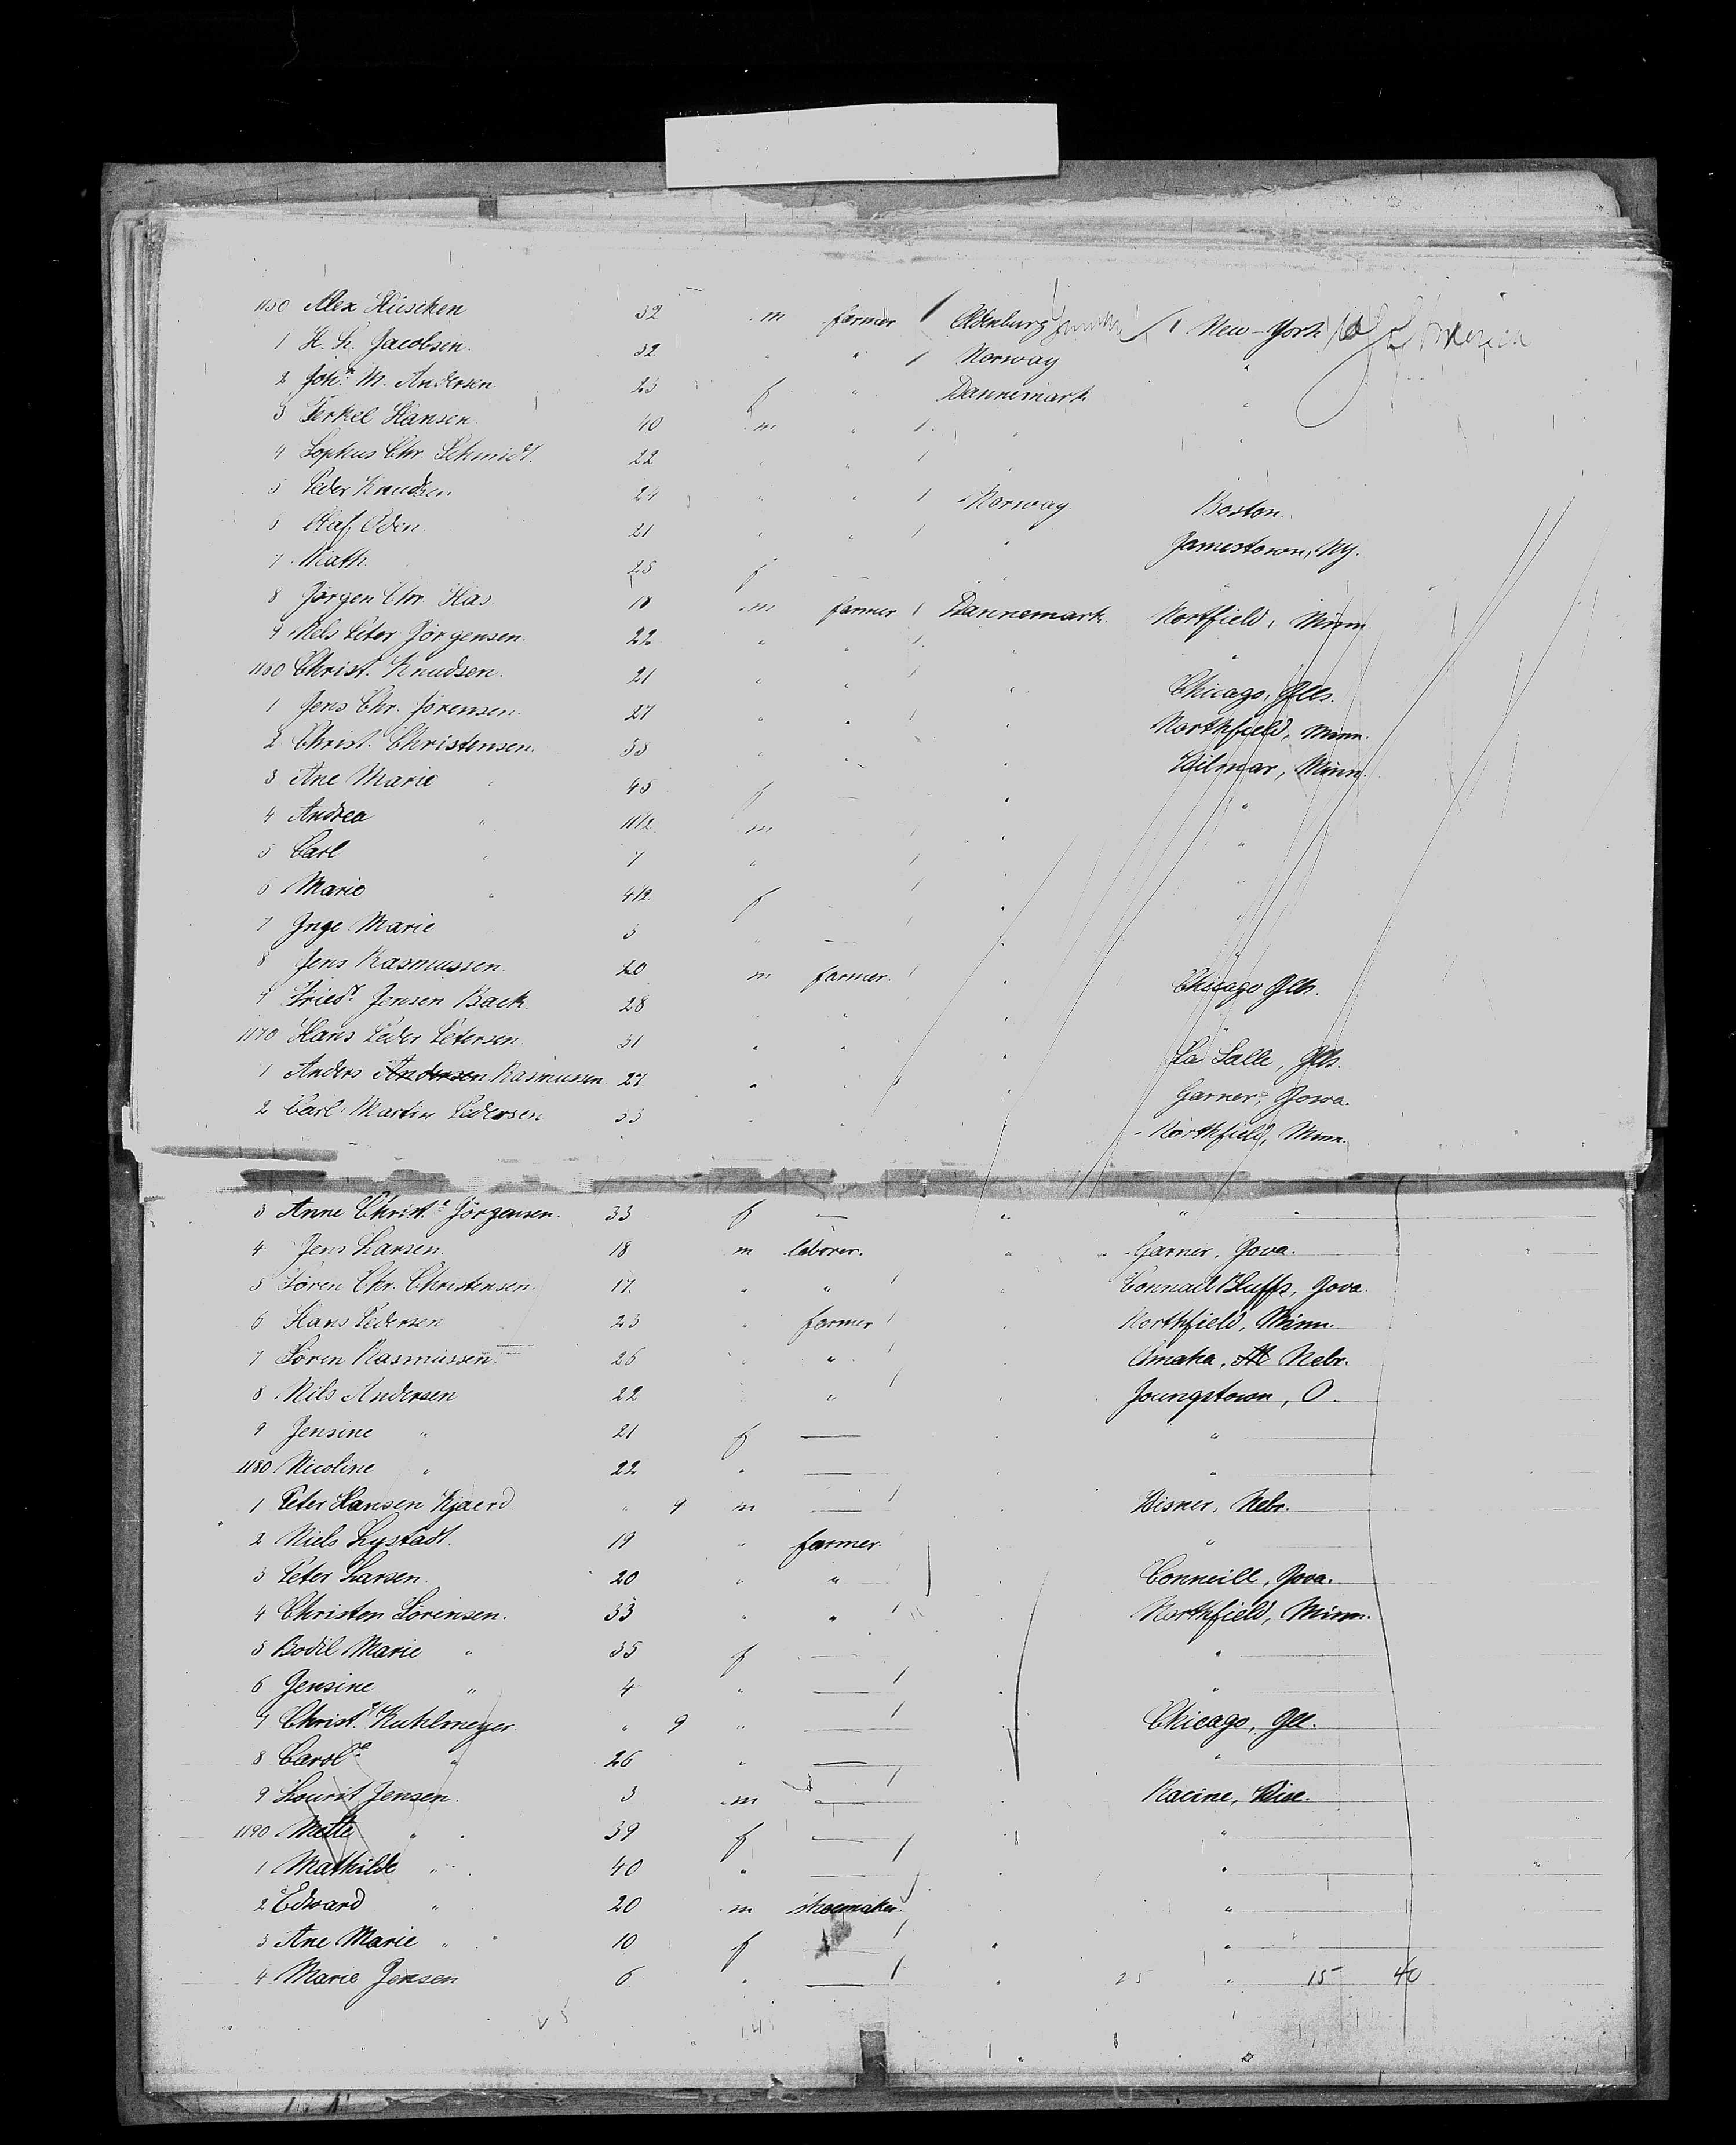 1150 Alex Hüscken 32 m farmer / Oldenburg / New-York
1 H. H. Jacobsen. 32 " " / Norway "
2 Joh.ª M. Andersen. 25 f " Dannemark "
3 Terkel Hansen 40 m " / " "
4 Sophus Chr. Schmidt. 22 " " / "
5 Peder Knudsen 24 " " / Norway Boston.
6 Olaf Odin. 21 " " / " Jamestown, Ny.
7 Math. 25 f
8 Jørgen Chr. Has 18 m farmer / Dannemark. Nortfield, Minn
9 Nels Peter Jørgensen. 22 " " / " "
1160 Christ. Knudsen. 21 " " " Chicago, Ills.
1 Jens Chr. Jörensen. 27 " " / " Northfield, Minn.
2 Christ. Christensen. 53 " " " Wilmar, Minn.
3 Ane Marie " 45 f — " "
4 Andrea " 11 1/2 m " "
5 Carl " 7 " / "
6 Marie " 4 1/2 f / " "
7 Inge Marie 3 " — / " "
8 Jens Rasmussen 20 m farmer. / " Chicago Ills.
9 Friedr Jensen Back. 28 " " " "
1170 Hans Peder Petersen. 31 " " " La Salle, Ills.
1 Anders Andersen Rasmussen 27 " " " Garner, Iowa.
2 Carl Martin Pedersen 33 " " " Northfield, Minn.
3 Anne Christ.e Jörgensen. 33 f — " "
4 Jens Larsen. 18 m laborer. " Garner, Iova.
5 Sören Chr. Christensen. 17 " " / " Connail Bluffs, Iova.
6 Hans Pedersen 23 " farmer / " Northfield, Minn.
7 Sören Rasmussen 26 " " / Omaha, Nebr.
8 Nils Andersen 22 " " / " Joungstown, O.
9 Jensine " 21 f — " "
1180 Nicoline " 22 " — " "
1 Peter Hansen Kjaerd " 9 m — / Wisner, Nebr.
2 Niels Lystadt. 19 " farmer. " "
3 Peter Larsen. 20 " " " Conneill, Iova.
4 Christen Sörensen. 33 " " / " Northfield, Minn.
5 Bodil Marie " 35 f — " "
6 Jensine " 4 " — / "
7 Christ.e Kuhlmeyer. " 9 " — / " Chicago, Ill.
8 Carol.e " 26 " — "
9 Lourit Jensen. 3 m — / " Racine, Wisc.
1190 Mette " 39 f — / "
1 Mathilde " 40 " — " "
2 Edward " 20 m shoemaker. "
3 Ane Marie " 10 f — / " "
4 Marie Jensen 6 " — / " 25 " 15 40